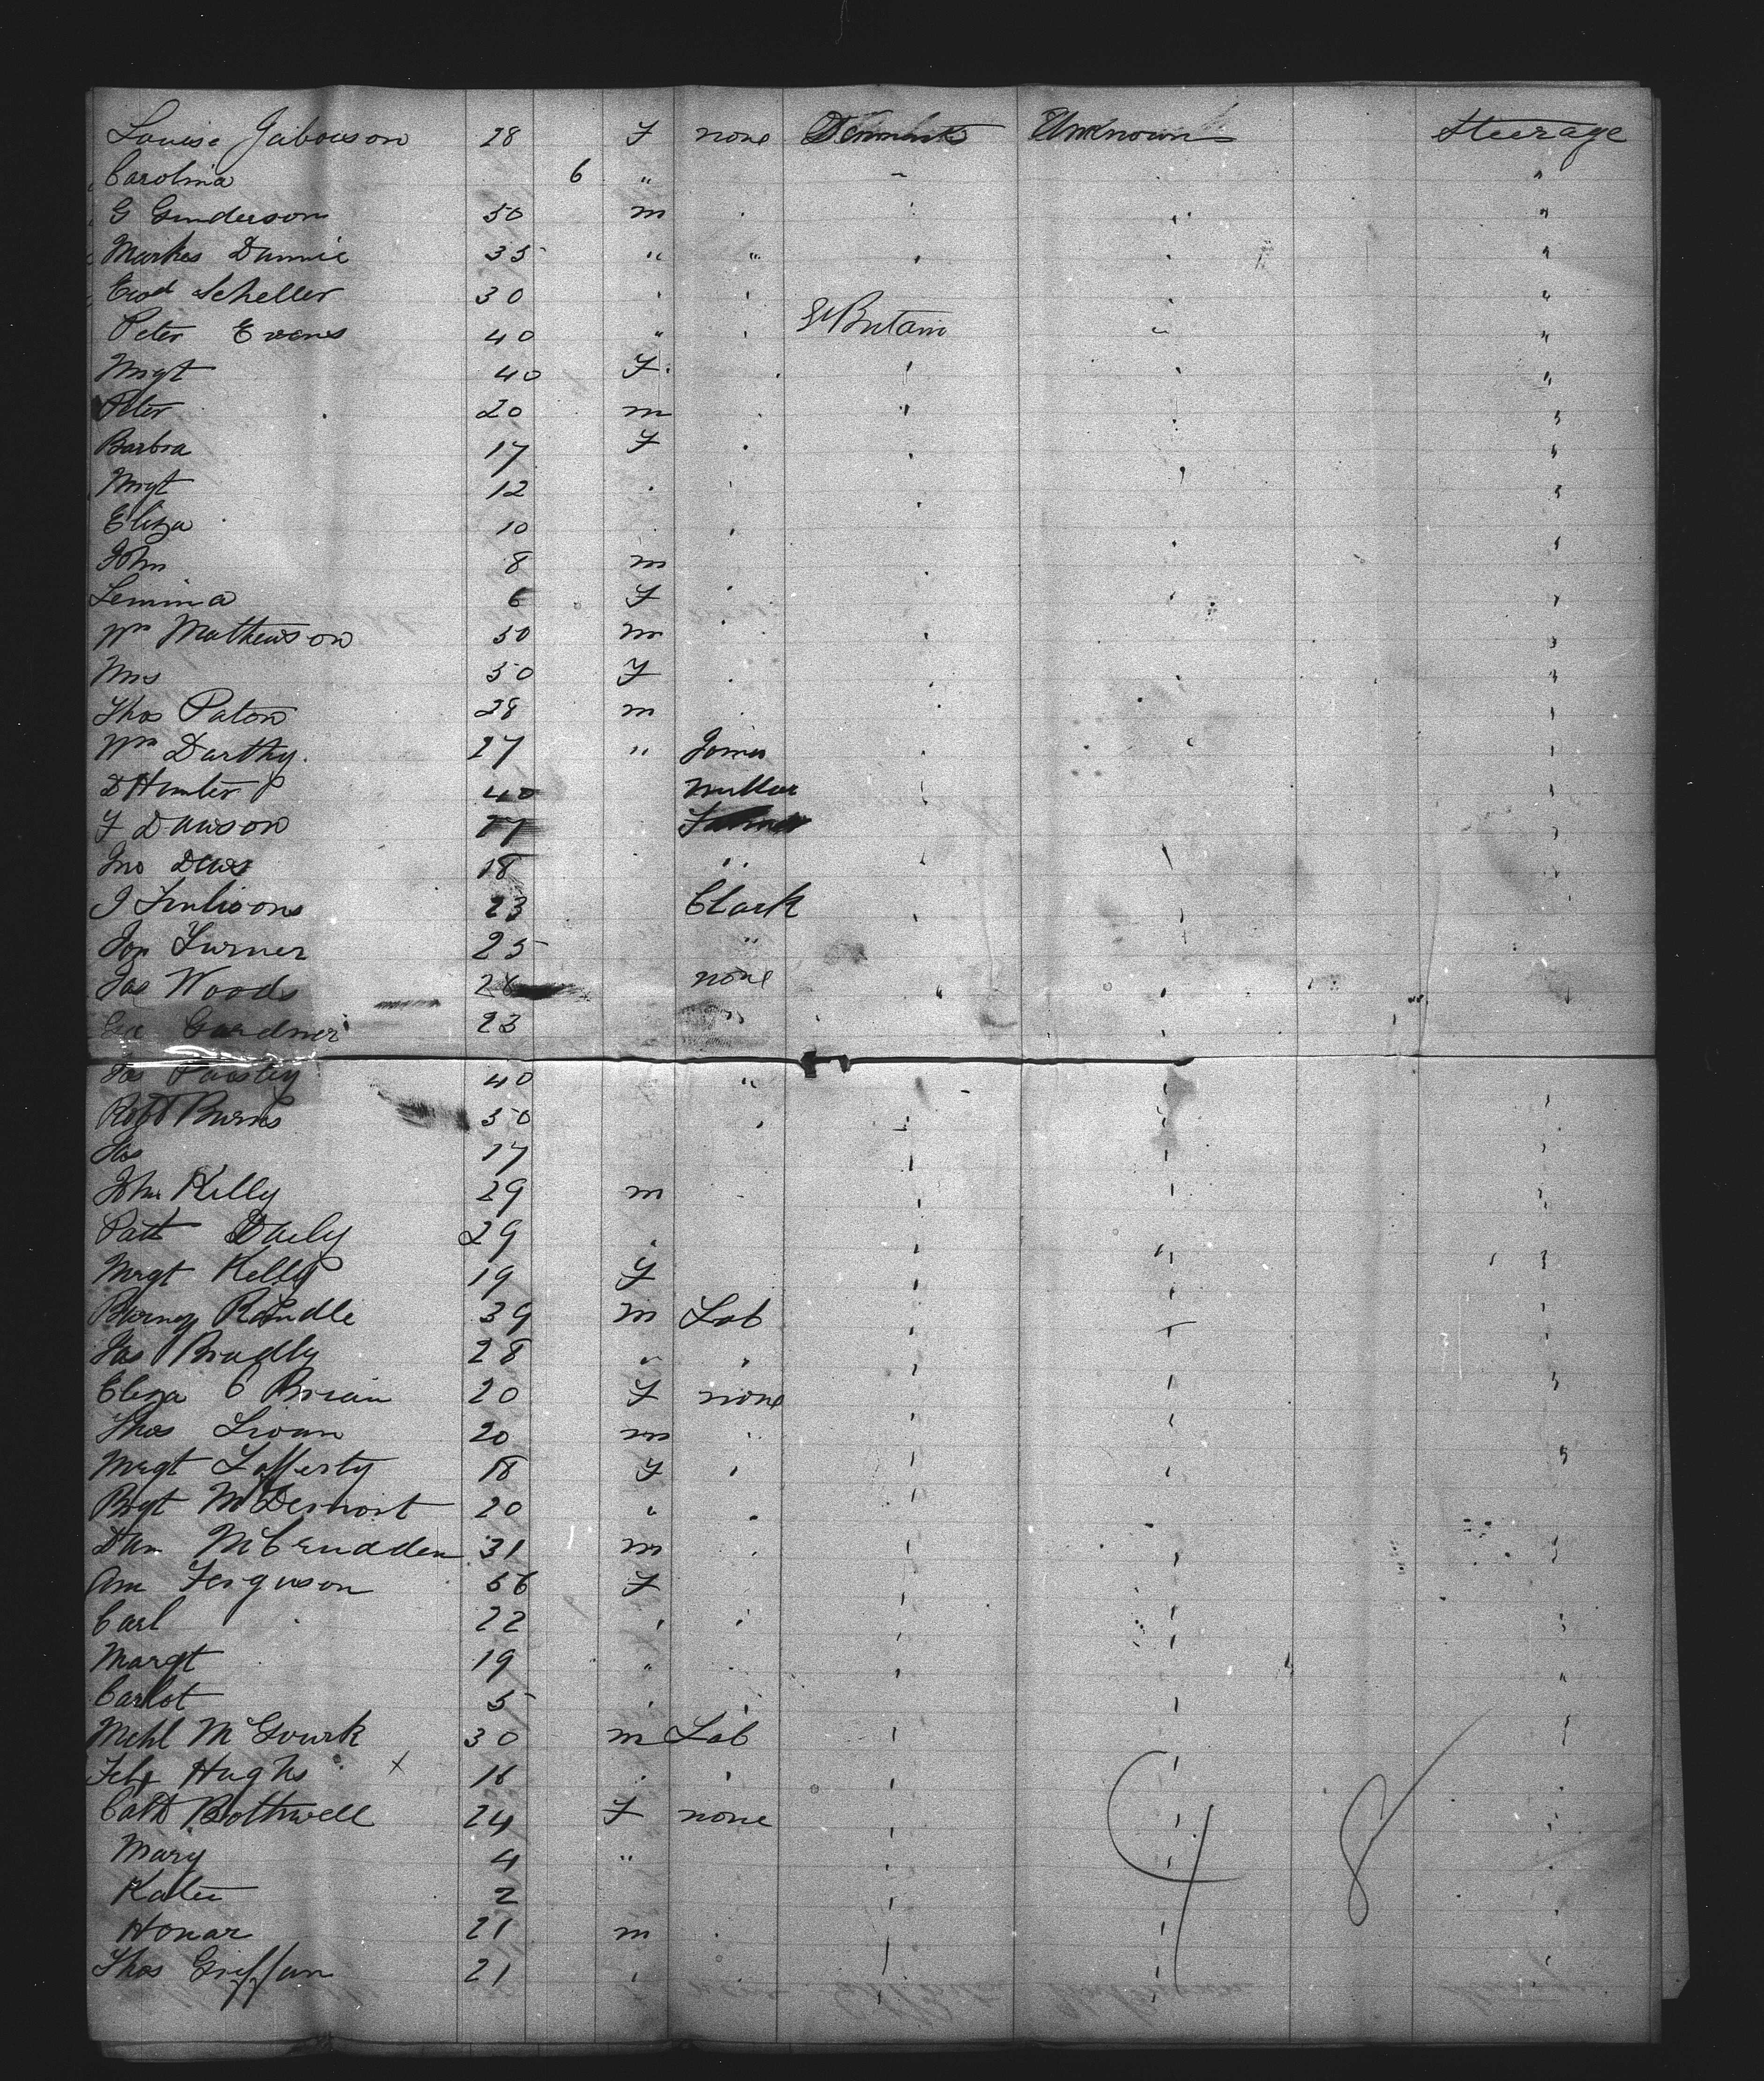 Louise Jabouson 28 F none Denmark Unknown Steerage
Carolina 6 " " "
G Gunderson 50 m " " "
Markes Dannie 35 " " " " "
Scheller 30 " " " "
Peter Evens 40 " " Gt Britain " "
Mrgt 40 F " " "
Peter 20 m " " "
Barbra 17 F " " " "
Mrgt 12 " " " " "
Eliza 10 " " " "
John 8 m " " "
Lemina 6 F " " "
Wm Mathewson 50 m " " "
Mrs 50 F " " " "
Thos Paton 28 m " " "
Wm Darthy. 27 " Joiner " " "
D Hunter 40 Miller " "
F Dawson 17 Farmer "
Jno Daws 18 " " " "
J Finlisons 23 Clark " " "
Jos Turner 25 "
Jas Woods 28 none " " "
Geo Gardner 23 " " "
Jas Paisley 40 " " " "
Robt Burns 50 " " " "
Jas 17 " " "
John Kelly 29 m " " " "
Patt Daily 29 " " " "
Mrgt Kelly 19 F " " "
Barney Randle 39 m Lab " " "
Jas Bradly 28 " " " "
Eliza O Brian 20 F none " " "
Thos 20 m " " "
Mrgt Lafferty 18 F " " " "
Brgt McDermort 20 " " "
Dan McCrudden 31 m " " " "
Ann Ferguson 56 F " "
Carl 22 " " " "
Margt 19 " " " "
Carlot 5 " " "
Mchl McGourk 30 m Lab " "
Felix Hughs x 18 " " " "
Cath Bothwell 24 F none " "
Mary 4 " " " "
Katie 2 "
Honar 21 m " " "
Thos Griffan 21 " " " "
48